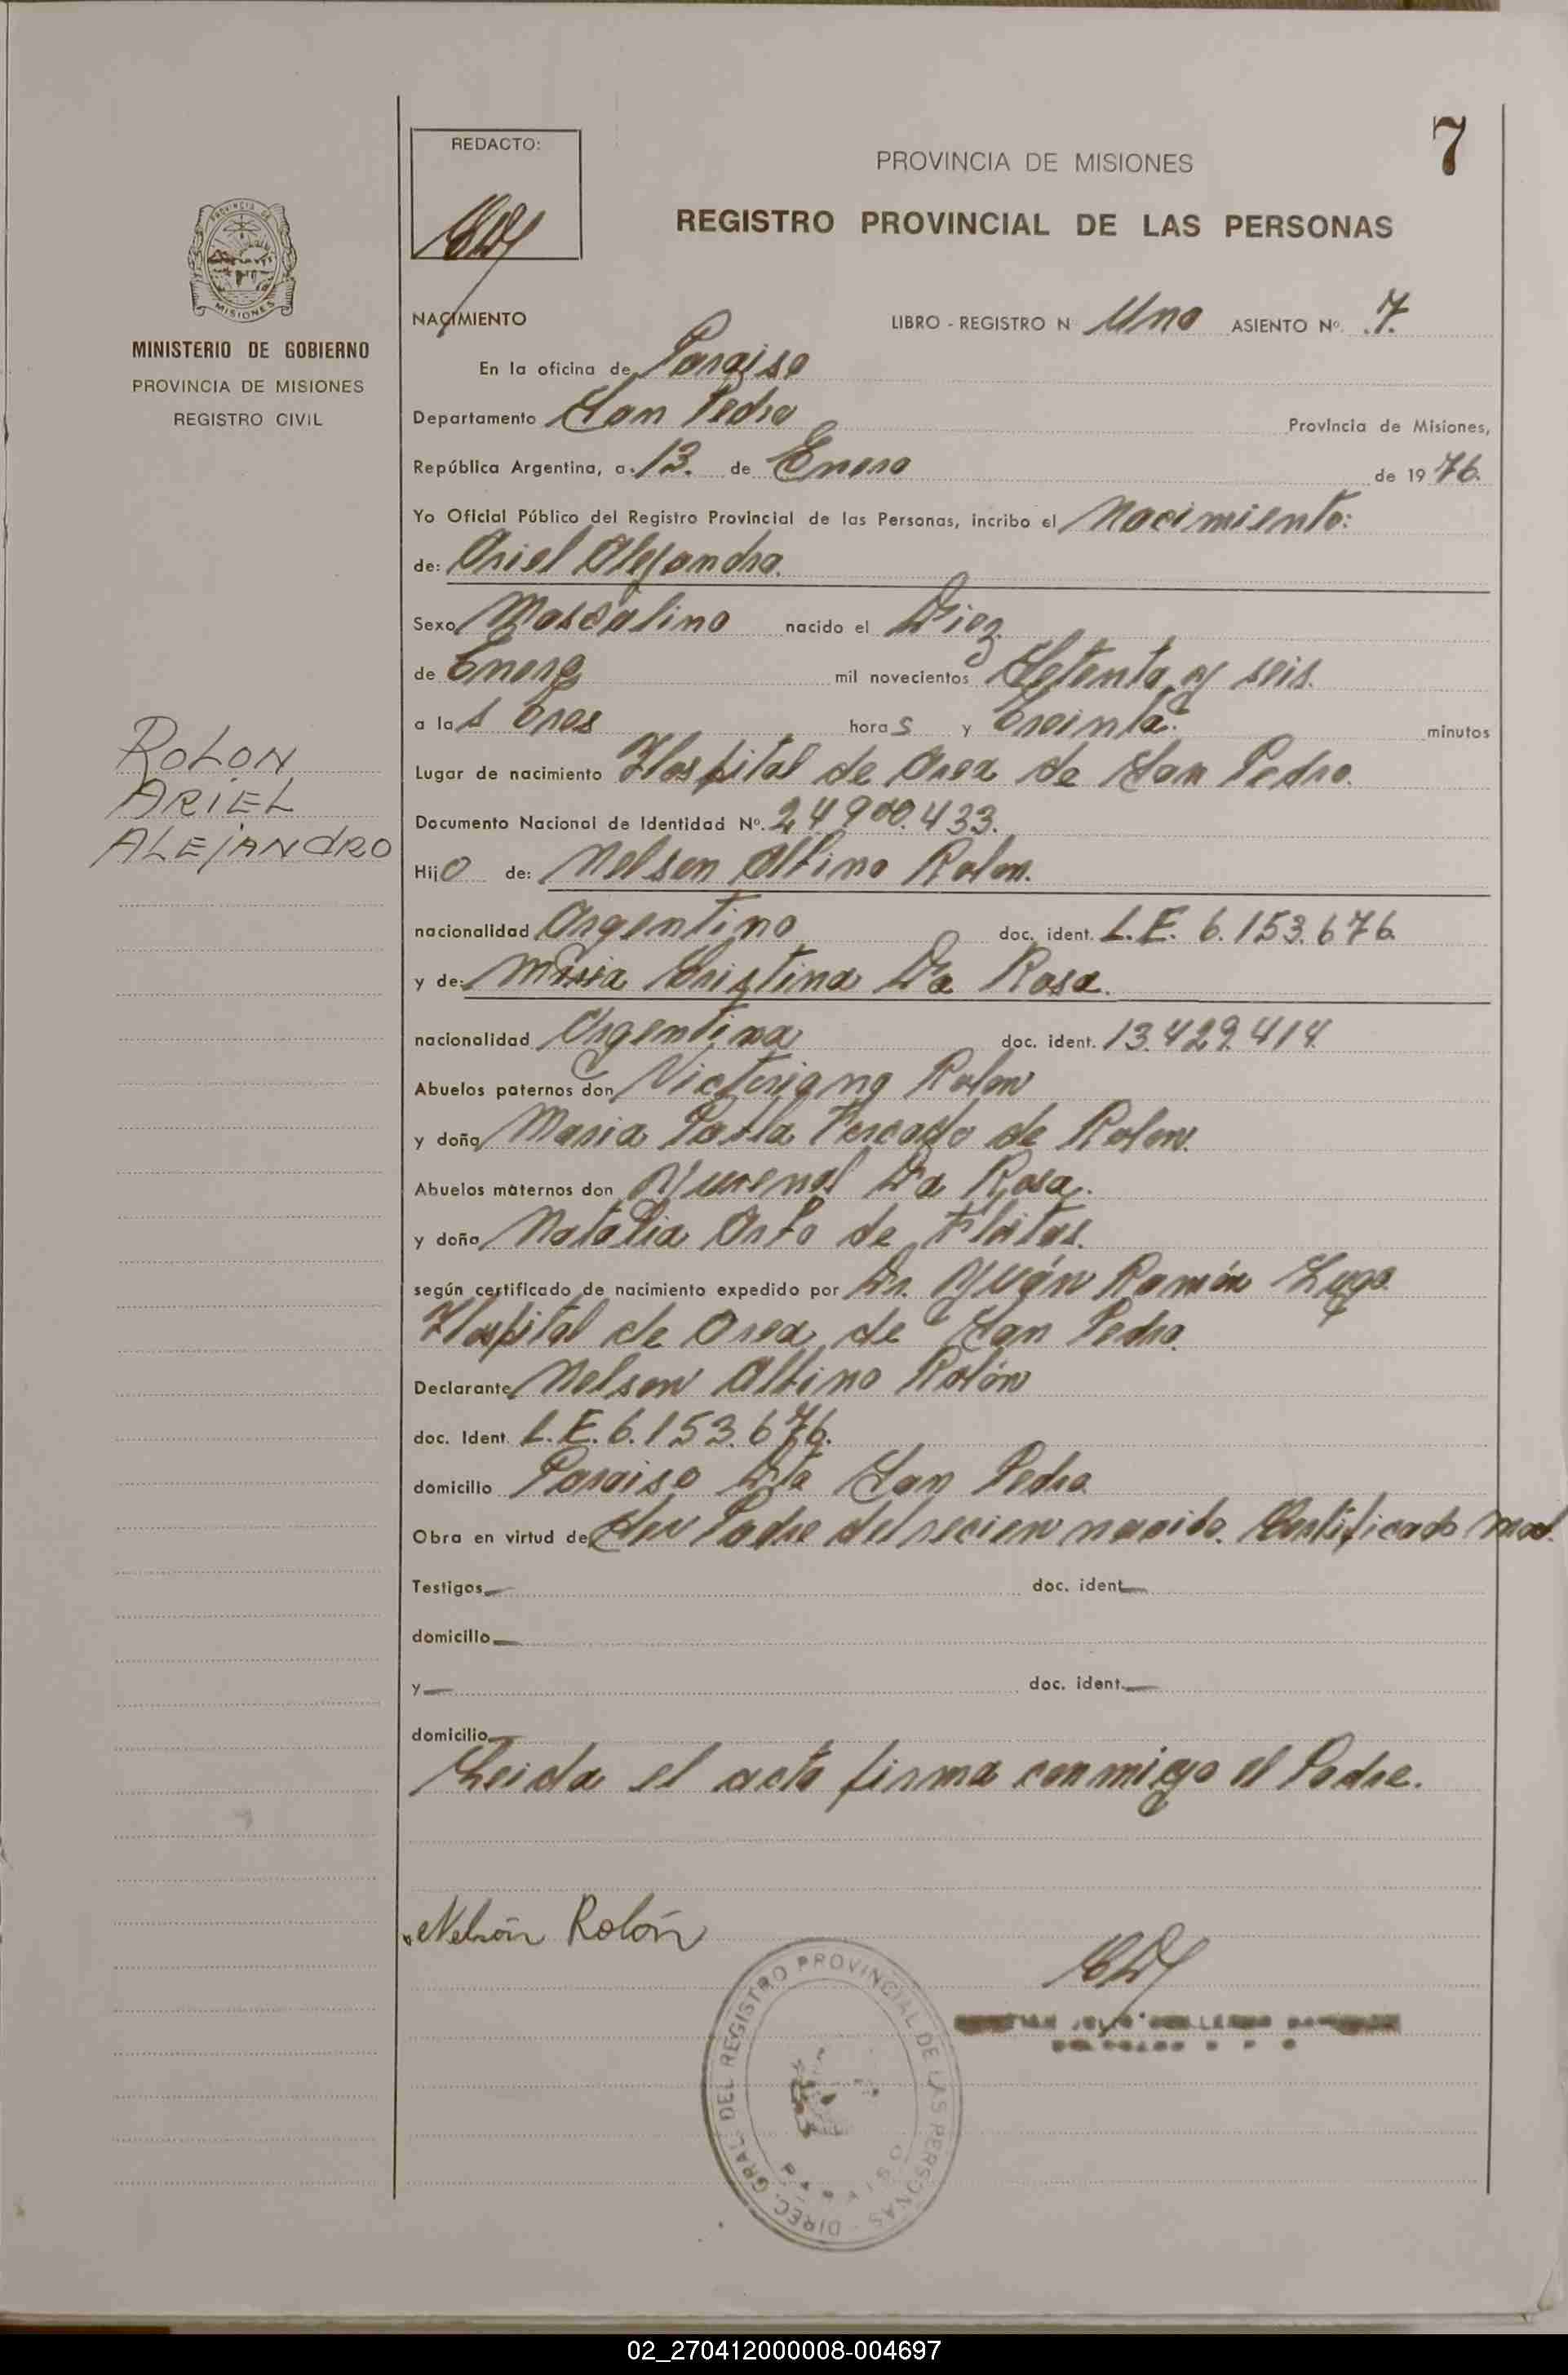 7
REDACTO:
PROVINCIA DE MISIONES
REGISTRO PROVINCIAL DE LAS PERSONAS
MISIONES
MINISTERIO DE GOBIERNO
PROVINCIA DE MISIONES
REGISTRO CIVIL
ROLON
ARIEL
ALEJANDRO
NACIMIENTO LIBRO - REGISTRO N Uno ASIENTO Nº. 7.
En la oficina de Paraiso
Departamento San Pedro Provincia de Misiones,
República Argentina, a 13. de Enero de 1976.
Yo Oficial Público del Registro Provincial de las Personas, incribo el Nacimiento:
de: Ariel Alejandro.
Sexo Masculino nacido el Diez
de Enero mil novecientos Setenta y seis.
a las tres horas y treinta. minutos
Lugar de nacimiento Hospital de Area de San Pedro.
Documento Nacional de Identidad Nº. 24.900.433.
Hijo de: Nelson Albino Rolon.
nacionalidad Argentino doc. ident. L.E. 6.153.676
y de: Maria Cristina Da Rosa.
nacionalidad Argentina doc. ident. 13.429.414
Abuelos paternos don Victoriano Rolon
y doña Maria de Rolon.
Abuelos maternos don Da Rosa.
y doña Natalia de Fleitas.
según certificado de nacimiento expedido por Dr. Juán Ramón Lugo
Hospital de Area de San Pedro.
Declarante Nelson Albino Rolón
doc. Ident. L.E. 6.153.676.
domicilio Paraiso Dto San Pedro
Obra en virtud de Ser Padre del recien nacido. Certificado med.
Testigos — doc. ident —
domicilio —
y — doc. ident. —
domicilio —
Leida el acta firma conmigo el Padre.
Nelsón Rolón
DIREC. GRAL. DEL REGISTRO PROVINCIAL DE LAS PERSONAS
02_270412000008-004697